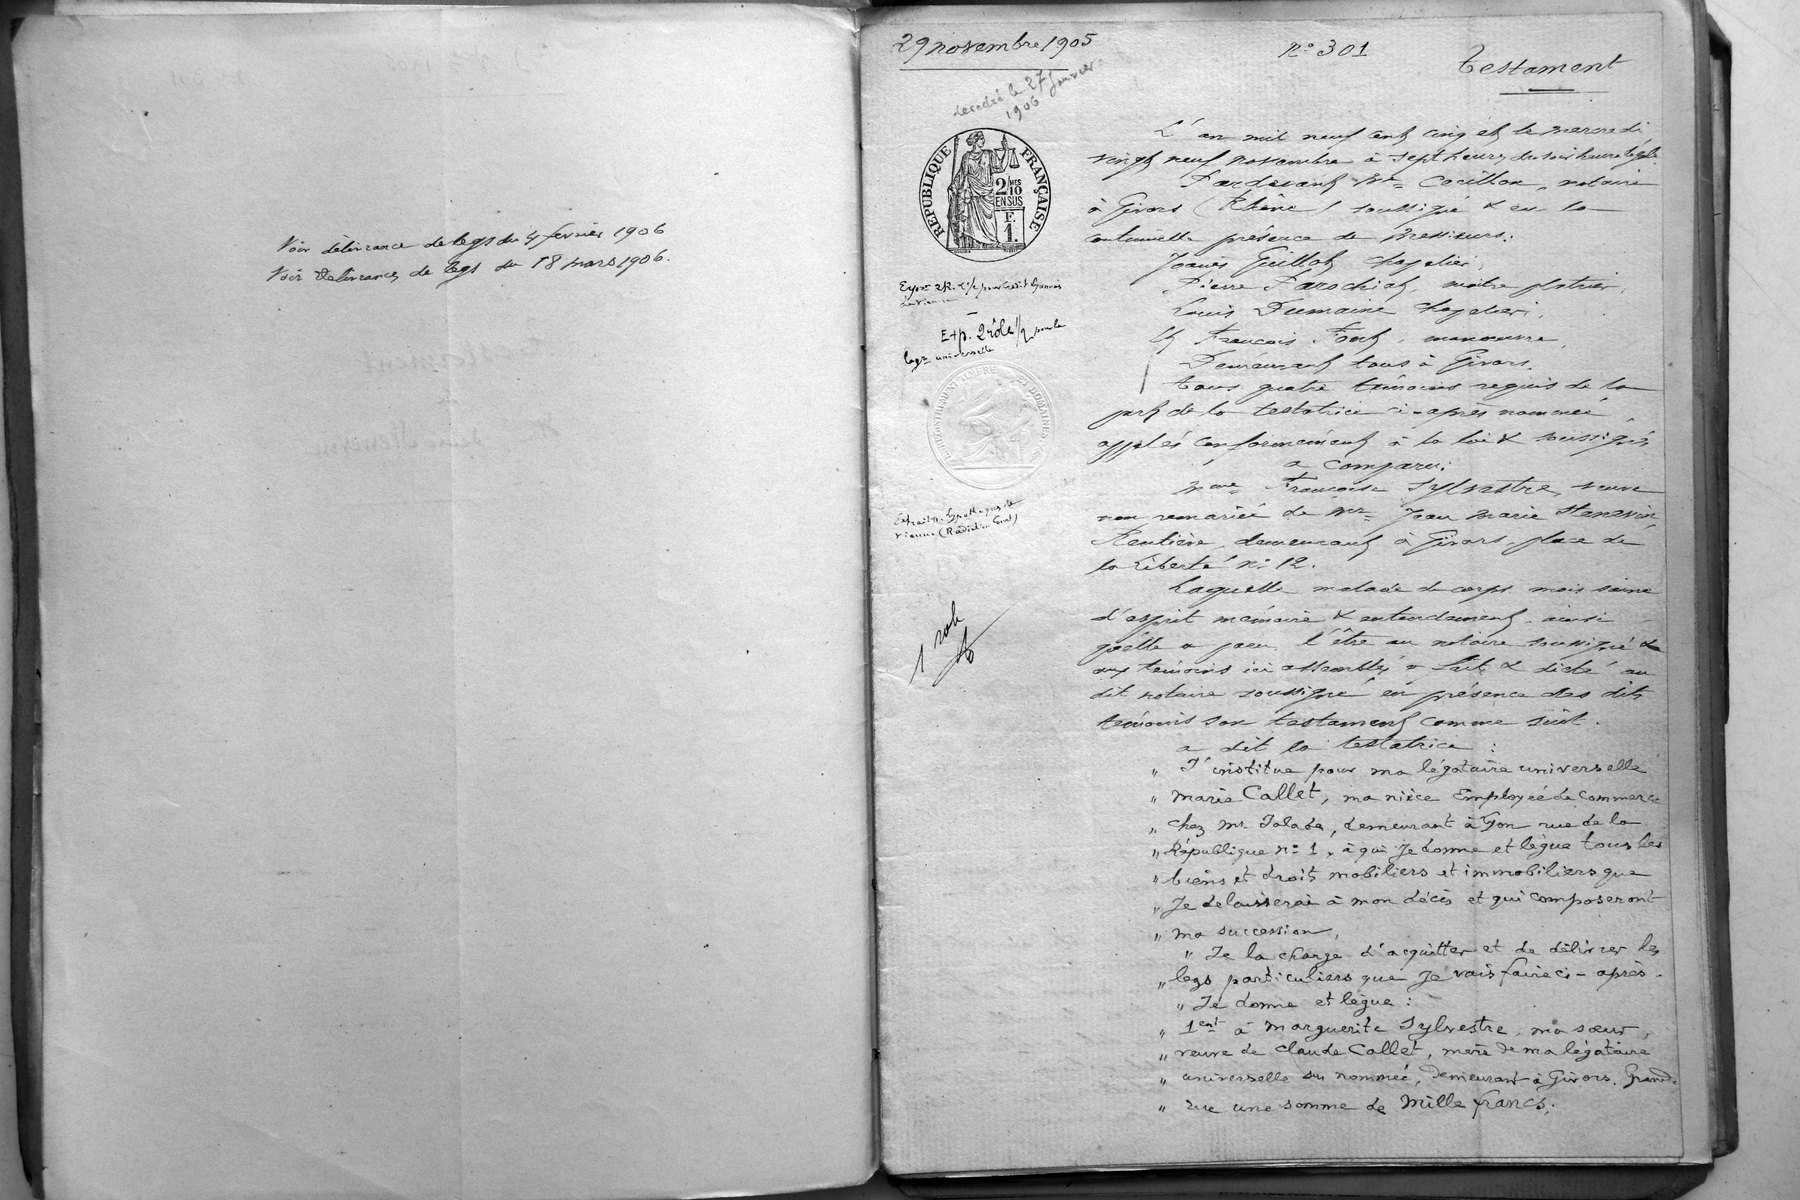 Voir délivrance de legs du 4 février 1906
Voir Délivrances de legs du 18 mars 1906.
29 novembre 1905
N° 301
Testament
décédée le 27 Janvier
1906
RÉPUBLIQUE FRANÇAISE
2/10 MES
EN SUS
F.
1.
L'an mil neuf cent cinq et le mercredi
vingt neuf novembre à sept heures du soir heure légale
Pardevant Me notaire
à Givors (Rhône) soussigné & en la
continuelle présence de Messieurs:
Joanès Guillot chapelier,
Pierre Parochiat, maître platrier,
Louis Dumaine chapelier,
Et François manoeuvre,
Demeurant tous à Givors.
Exp. 2 rôles 1/2 pour la
légre universelle
ENREGISTREMENT TIMBRE ET DOMAINES
Tous quatre témoins requis de la
part de la testatrice ci-après nommée,
appelés conformément à la loi & soussignés
a comparu:
Mme Françoise Sylvestre, veuve
non remariée de Mr Jean Marie Stenevin,
Rentière, demeurant à Givors, place de
la Liberté n° 12.
Laquelle malade de corps mais saine
d'esprit mémoire & entendement, ainsi
qu'elle a paru l'être au notaire soussigné &
aux témoins ici assemblés a fait & dicté au
dit notaire soussigné en présence des dits
témoins son testament comme suit.
a dit la testatrice :
1 role
" J'institue pour ma légataire universelle
" Marie Callet, ma nièce Employée de commerce
" chez Mr demeurant à Lyon rue de la
" République n° 1, à qui Je donne et lègue tous les
" biens et droits mobiliers et immobiliers que
" Je delaisserai à mon décès et qui composeront
" ma succession,
" Je la charge d'acquitter et de délivrer les
" legs particuliers que Je vais faire ci-après.
" Je donne et lègue :
" 1ent à Marguerite Sylvestre, ma sœur,
" veuve de Claude Callet, mère de ma légataire
" universelle sus nommée, Demeurant à Givors, Grande
" rue une somme de Mille francs;